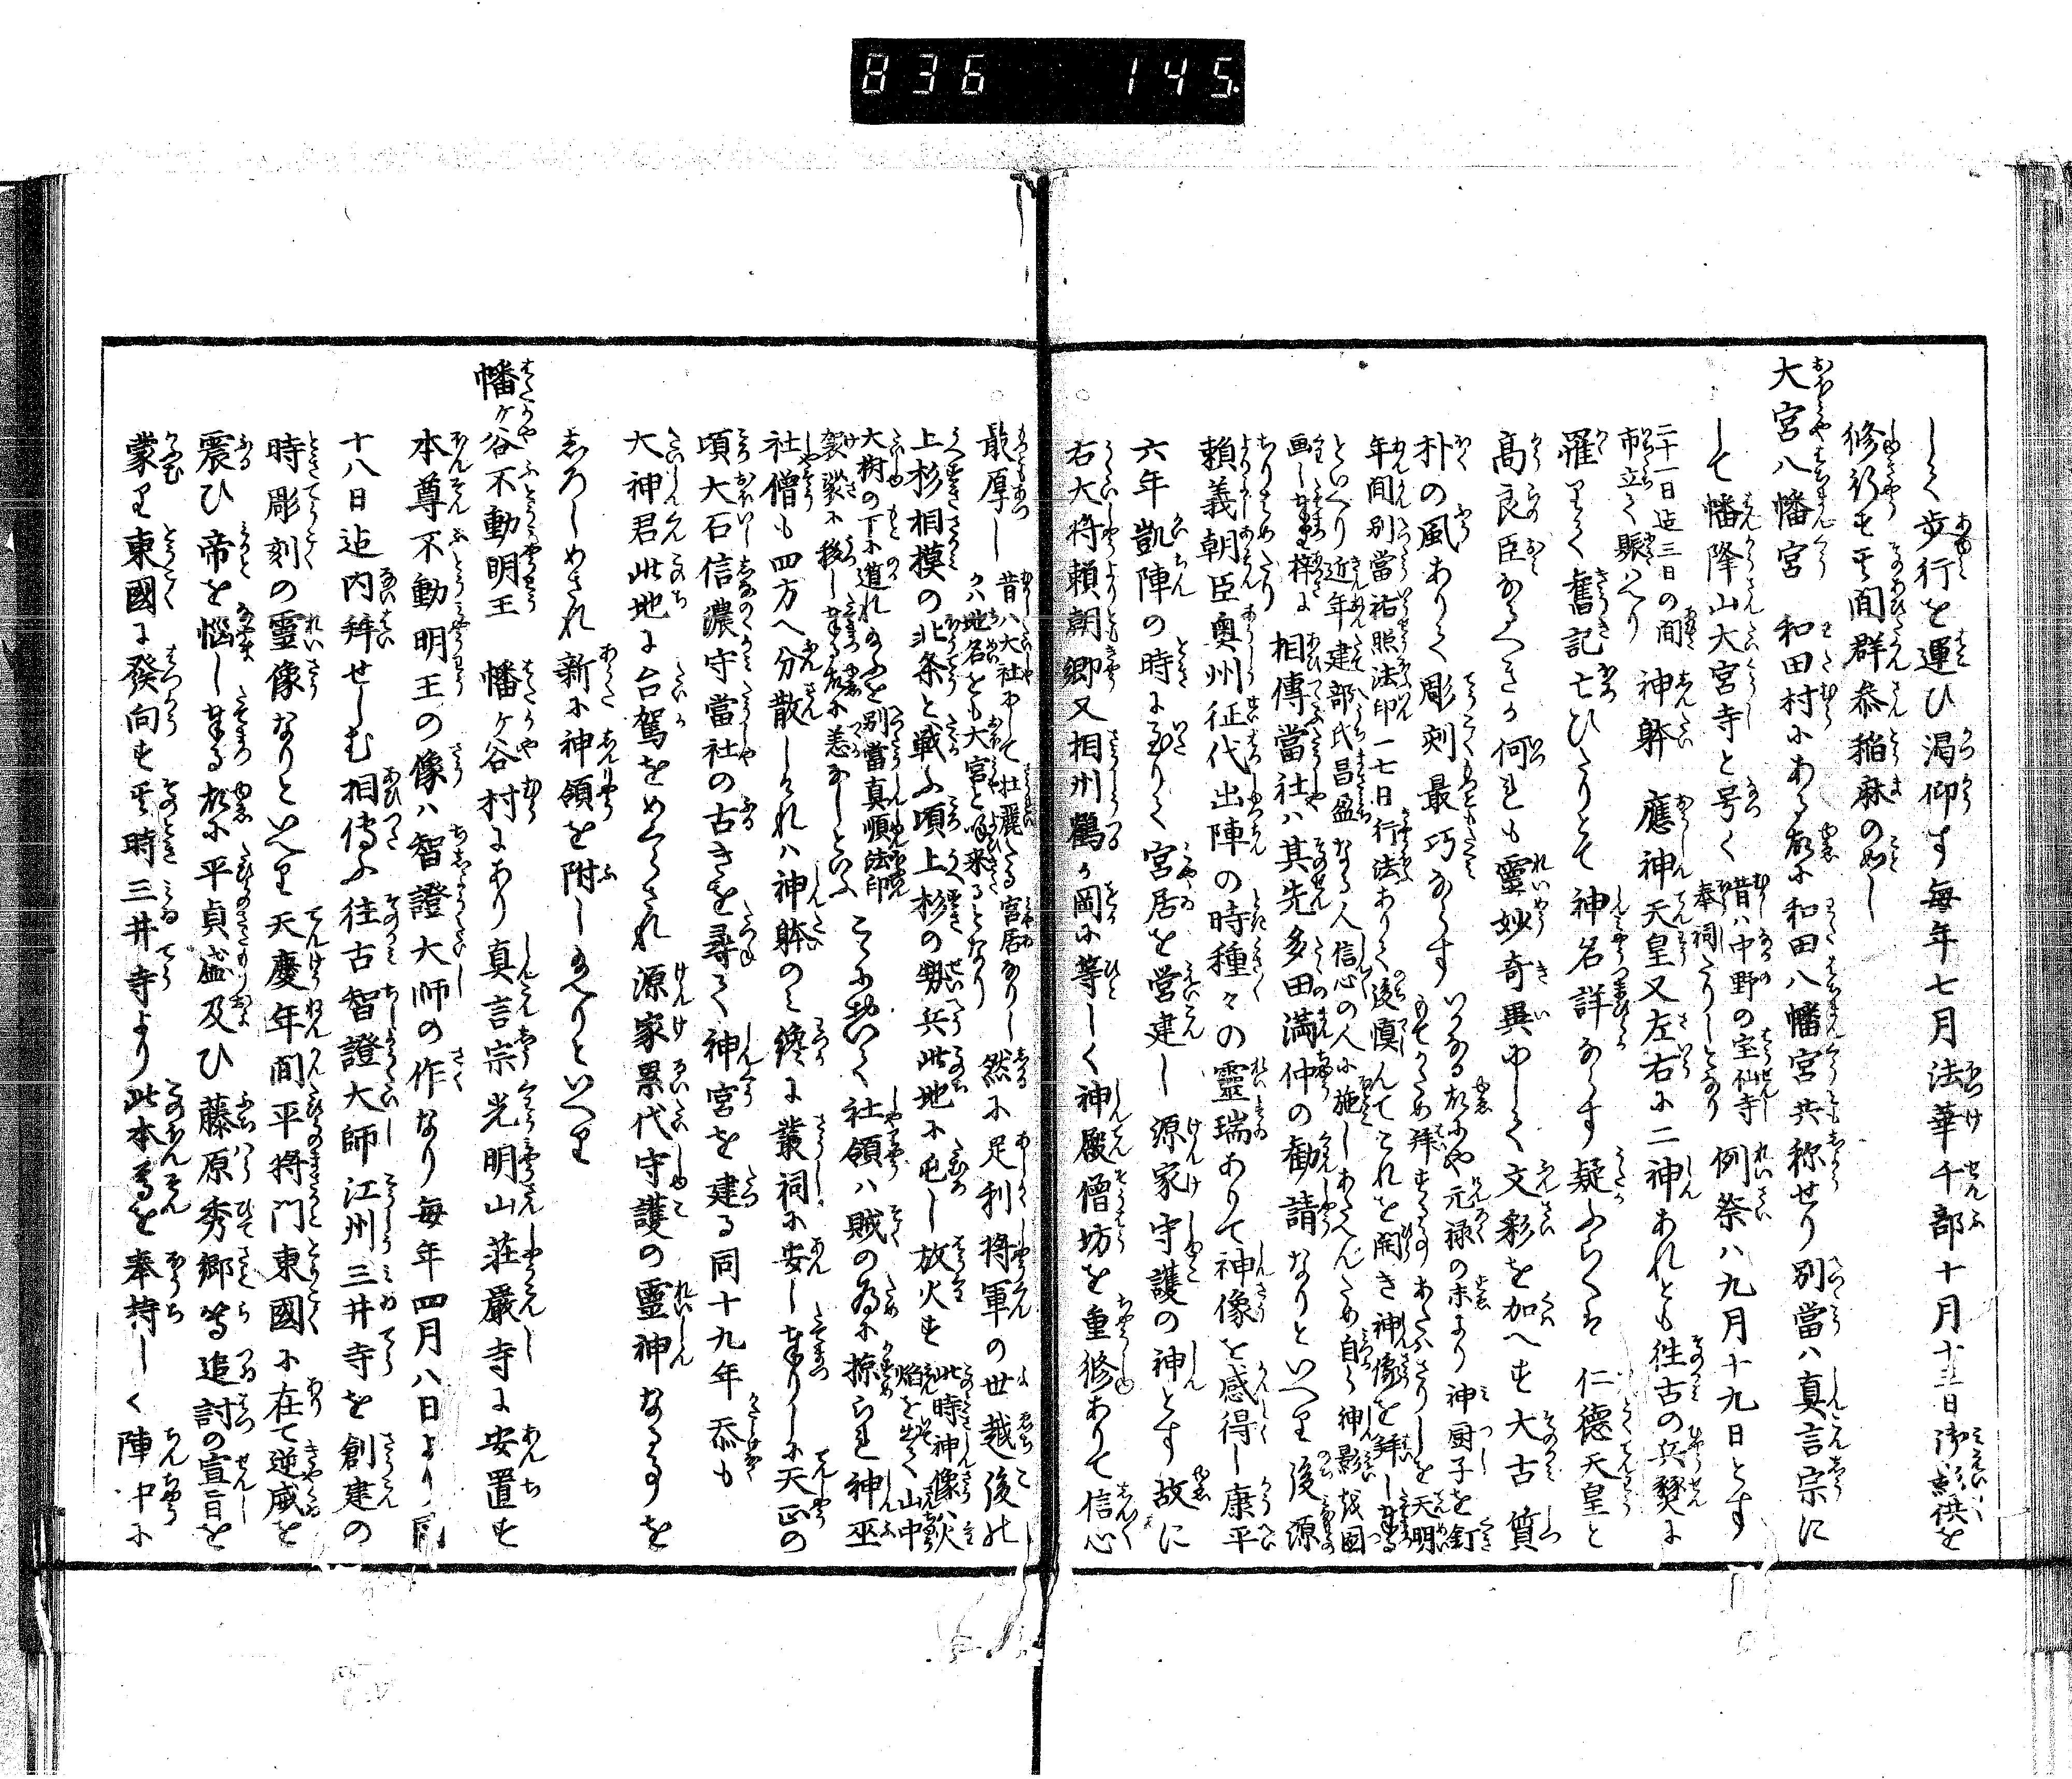 836 145.
しく歩行を運ひ渇仰す毎年七月法華千部十月十三日御影供を
修行も其間群参稲麻の如し
大宮八幡宮 和田村にあり故に和田八幡宮共称せり別當ハ真言宗に
して幡降山大宮寺と号く 昔ハ中野の宝仙寺奉祠たりしとなり 例祭ハ九月十九日とす
二十一日迄三日の間市立て賑へり 神躰 應神天皇又左右に二神あれとも往古の兵燹に
罹りて舊記亡ひたりとて神名詳ならす疑ふらくは 仁徳天皇と
高良臣なるへきか何れも霊妙奇異にして文彩を加へす大古質
朴の風ありて彫刻最巧ならす
いかなる故にや元禄の末より神厨子を釘
もてかため拝するあたはさりしを天明
年間別當祐照法印一七日行法ありて後慎んてこれを開き神像を拜し奉る
といへり近年建部氏昌盈なる人信心の人に施しあたへんため自ら神影を圖
画し奉り梓にちりはめたり 相傳當社ハ其先多田満仲の勧請なりといへり後源
頼義朝臣奥州征代出陣の時種々の霊瑞ありて神像を感得し康平
六年凱陣の時に至りて宮居を営建し源家守護の神とす故に
右大将頼朝郷又相州鶴か岡に等しく神殿僧坊を重修ありて信心
最厚し 昔ハ大社にして壮麗たる宮居なりし
かハ地名をも大宮と唱へ来るとなり 然に足利将軍の世越後の
上杉相模の北条と戦ふ頃上杉の勢兵此地に屯し放火す 此時神像ハ火
焔を出て山中
大樹の下に遁れ給ふを別當真順法印
袈裟に移し奉る故に恙なしといふ こゝに於いて社領ハ賊の為に掠られ神巫
社僧も四方へ分散しけれハ神躰のミ纔に叢祠に安し奉りしに天正の
頃大石信濃守當社の古きを尋て神宮を建る同十九年忝も
大神君此地に台駕をめくらされ源家累代守護の霊神なるを
しろしめされ新に神領を附し給へりといへり
幡ケ谷不動明王 幡ケ谷村にあり真言宗光明山荘厳寺に安置す
本尊不動明王の像ハ智證大師の作なり毎年四月八日より同
十八日迄内拜せしむ相傳ふ往古智證大師江州三井寺を創建の
時彫刻の霊像なりといへり天慶年間平将門東國に在て逆威を
震ひ帝を悩し奉る故に平貞盛及ひ藤原秀郷等追討の宣旨を
蒙り東國に發向す其時三井寺より此本尊を奉持しく陣中に